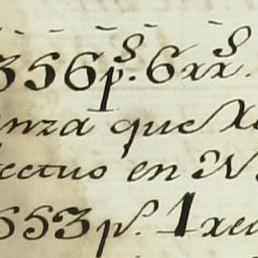 356p.s 6rr.s
nza que
ectuo en N.
553p.s 1 rea